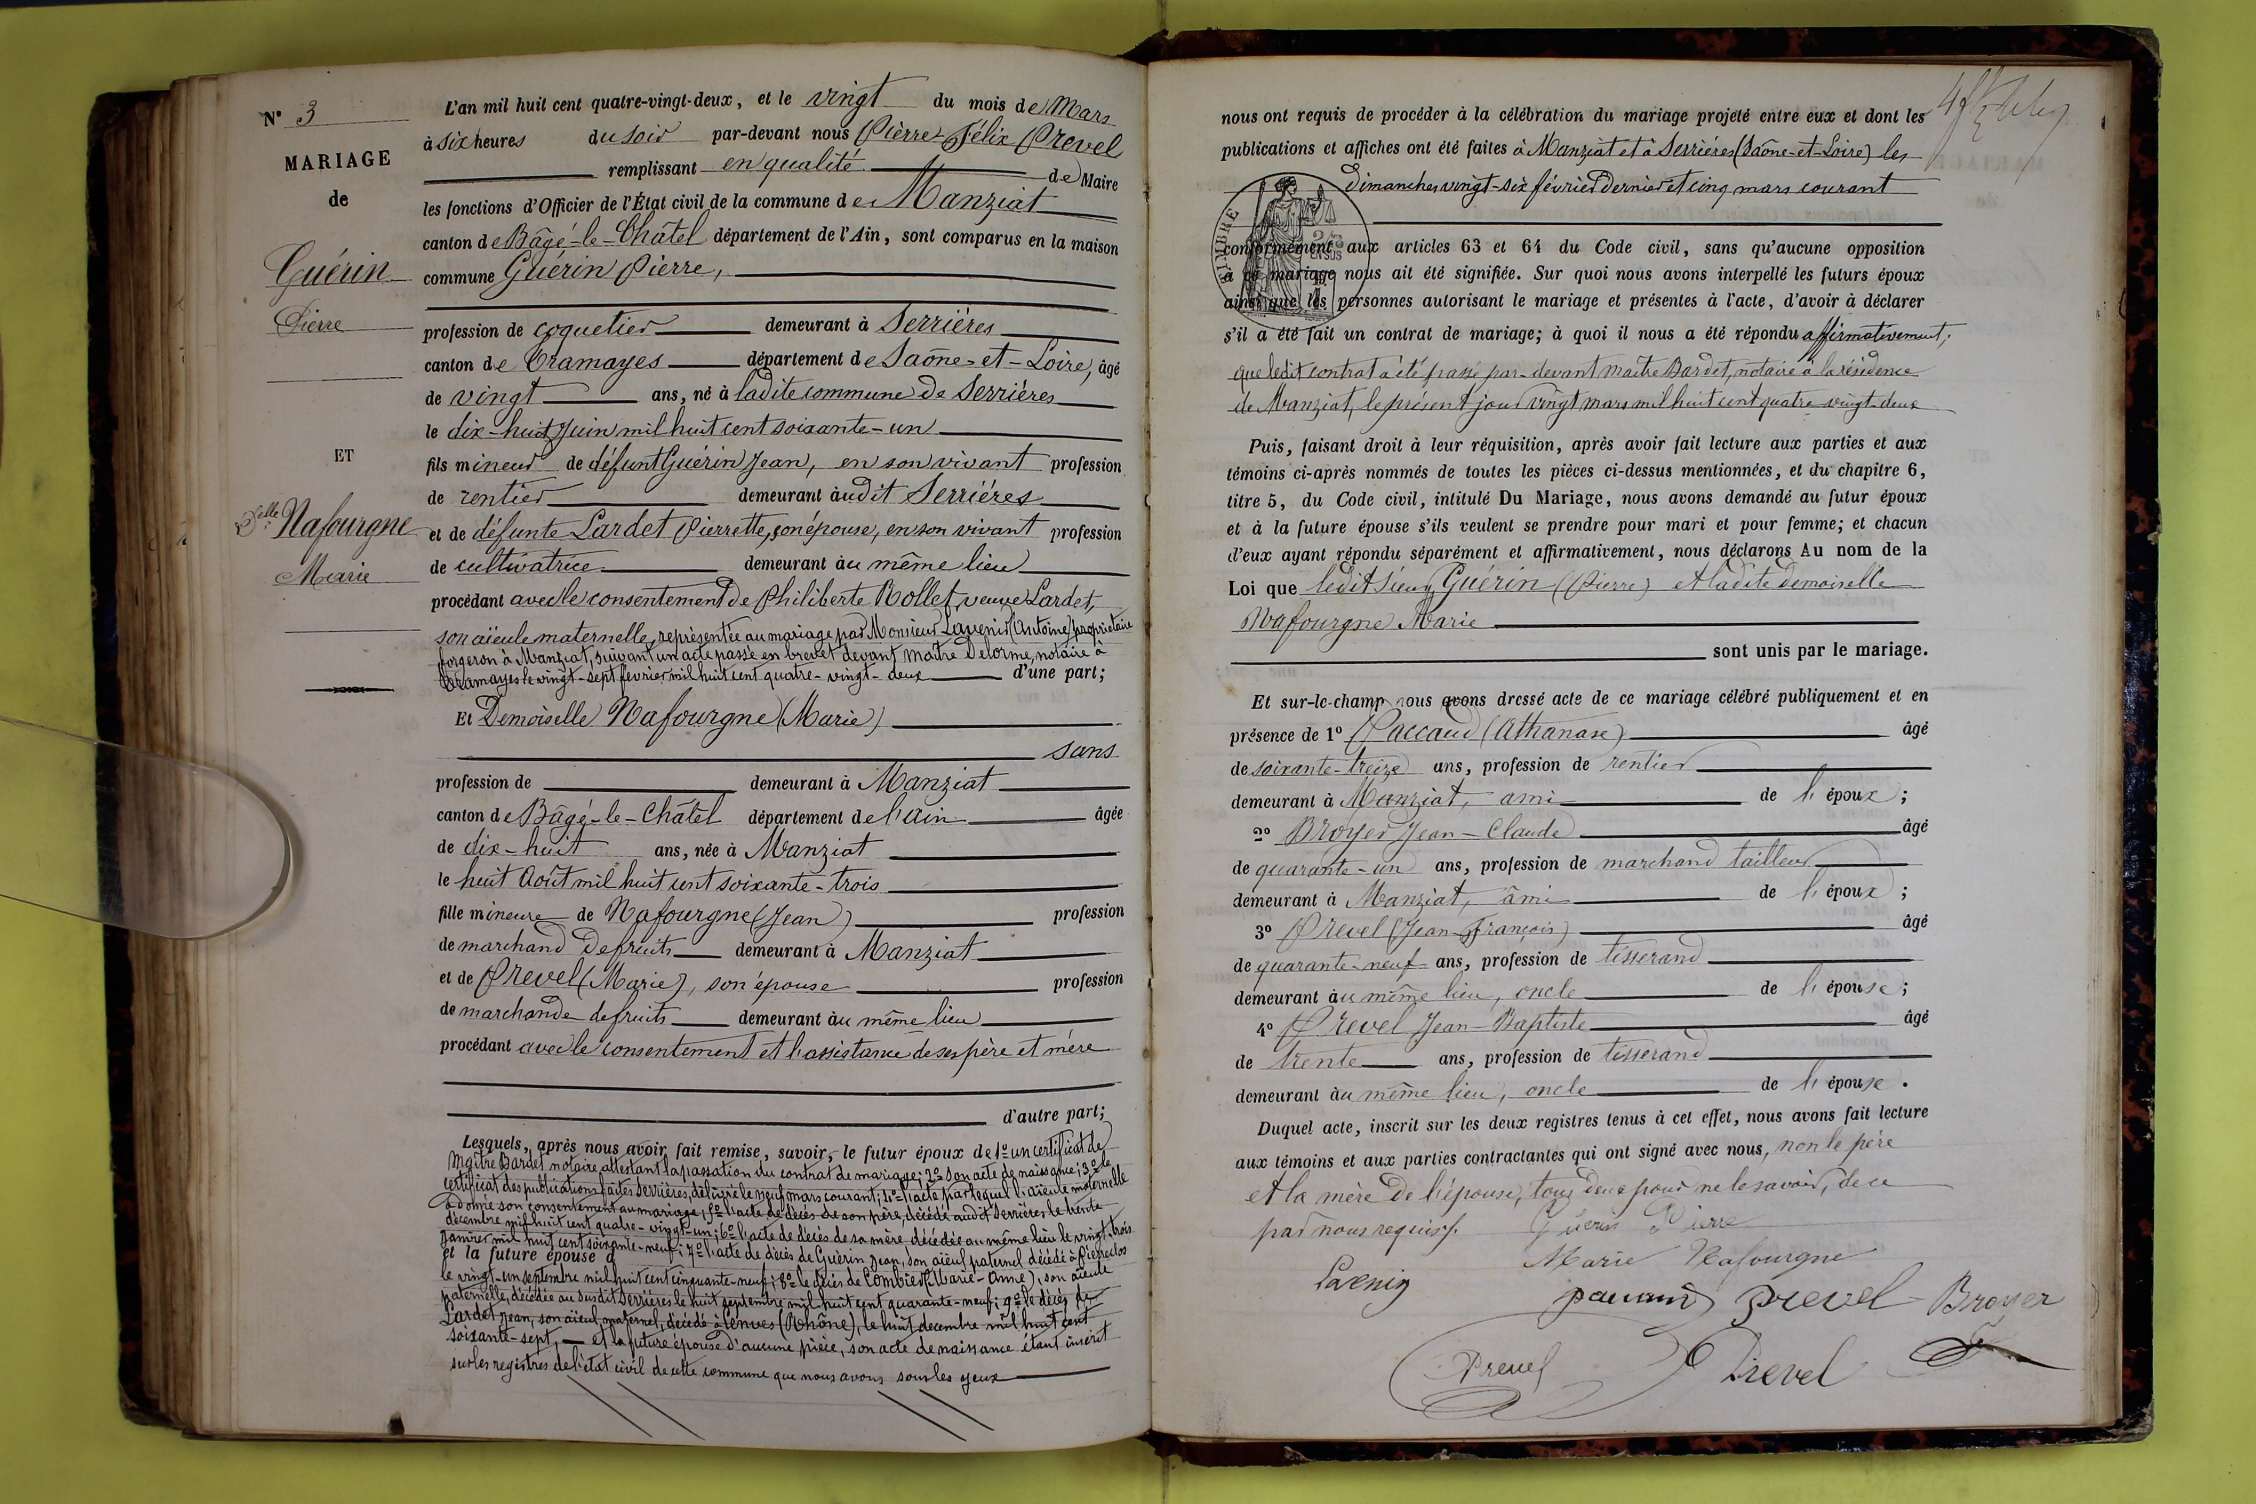 N° 3
MARIAGE
de
Guérin
Pierre
ET
Delle Nafourgne
Marie
L'an mil huit cent quatre-vingt-deux, et le vingt du mois de Mars
à six heures du soir par-devant nous Pierre-Félix Prevel
remplissant en qualité de Maire
les fonctions d'Officier de l'État civil de la commune de Manziat
canton de Bâgé-le-Châtel département de l'Ain, sont comparus en la maison
commune Guérin Pierre,
profession de coquetier demeurant à Serrières
canton de Tramayes département de Saône-et-Loire, âgé
de vingt ans, né à ladite commune de Serrières
le dix-huit Juin mil huit cent soixante-un
fils mineur de défunt Guérin Jean, en son vivant profession
de rentier demeurant audit Serrières
et de défunte Lardet Pierrette, son épouse, en son vivant profession
de cultivatrice demeurant au même lieu
procédant avec le consentement de Philiberte Rollet, veuve Lardet,
son aïeule maternelle, représentée au mariage par Monsieur Lavenir (Antoine) propriétaire
forgeron à Manziat, suivant un acte passé en brevet devant maître Delorme, notaire à
Tramayes le vingt-sept février mil huit cent quatre-vingt-deux d'une part;
Et Demoiselle Nafourgne (Marie)
sans
profession de demeurant à Manziat
canton de Bâgé-le-Châtel département de l'Ain âgée
de dix-huit ans, née à Manziat
le huit Août mil huit cent soixante-trois
fille mineure de Nafourgne (Jean) profession
de marchand de fruits demeurant à Manziat
et de Prevel (Marie), son épouse profession
de marchande de fruits demeurant au même lieu
procédant avec le consentement et l'assistance de ses père et mère
d'autre part;
Lesquels, après nous avoir fait remise, savoir, le futur époux de 1° un certificat de
Maître Bardet notaire, attestant la passation du contrat de mariage; 2° son acte de naissance; 3° le
certificat des publications faites Serrières, délivré le neuf mars courant; 4° l'acte par lequel l'aïeule maternelle
a donné son consentement au mariage; 5° l'acte de décès de son père, décédé audit Serrières, le trente
décembre mil huit cent quatre-vingt-un; 6° l'acte de décès de sa mère décédée au même lieu le vingt-trois
janvier mil huit cent soixante-neuf; 7° l'acte de décès de Guérin Jean, son aïeul paternel décédé à Pierreclos
et la future épouse d
le vingt-un septembre mil huit cent cinquante-neuf; 8° le décès de Combier (Marie-Anne), son aïeule
paternelle, décédée au susdit Serrières le huit septembre mil huit cent quarante-neuf; 9° le décès de
Lardet Jean, son aïeul maternel, décédé à Cenves (Rhône), le huit décembre mil huit cent
soixante-sept, et la future épouse d'aucune pièce, son acte de naissance étant inscrit
sur les registres de l'état civil de cette commune que nous avons sous les yeux
nous ont requis de procéder à la célébration du mariage projeté entre eux et dont les
publications et affiches ont été faites à Manziat et à Serrières (Saône-et-Loire) les
dimanches vingt-six février dernier et cinq mars courant
TIMBRE
conformément aux articles 63 et 64 du Code civil, sans qu'aucune opposition
à ce mariage nous ait été signifiée. Sur quoi nous avons interpellé les futurs époux
ainsi que les personnes autorisant le mariage et présentes à l'acte, d'avoir à déclarer
s'il a été fait un contrat de mariage; à quoi il nous a été répondu affirmativement,
que ledit contrat a été passé par-devant maître Bardet, notaire à la résidence
de Manziat, le présent jour vingt mars mil huit cent quatre-vingt-deux
Puis, faisant droit à leur réquisition, après avoir fait lecture aux parties et aux
témoins ci-après nommés de toutes les pièces ci-dessus mentionnées, et du chapitre 6,
titre 5, du Code civil, intitulé Du Mariage, nous avons demandé au futur époux
et à la future épouse s'ils veulent se prendre pour mari et pour femme; et chacun
d'eux ayant répondu séparément et affirmativement, nous déclarons Au nom de la
Loi que ledit Sieur Guérin (Pierre) et ladite demoiselle
Nafourgne Marie
sont unis par le mariage.
Et sur-le-champ nous avons dressé acte de ce mariage célébré publiquement et en
présence de 1° Paccaud (Athanase) âgé
de soixante-treize ans, profession de rentier
demeurant à Manziat, ami de l'époux;
2° Broyer Jean-Claude âgé
de quarante-un ans, profession de marchand tailleur
demeurant à Manziat, âmi de l'époux;
3° Prevel (Jean-François) âgé
de quarante-neuf ans, profession de tisserand
demeurant au même lieu, oncle de l'épouse;
4° Prevel Jean-Baptiste âgé
de trente ans, profession de tisserand
demeurant au même lieu, oncle de l'épouse.
Duquel acte, inscrit sur les deux registres tenus à cet effet, nous avons fait lecture
aux témoins et aux parties contractantes qui ont signé avec nous, non le père
et la mère de l'épouse, tous deux pour ne le savoir, de ce
par nous requis.
Guérin Pierre
Marie Nafourgne
Lavenir
paccaud prevel Broyer
Prevel Prevel